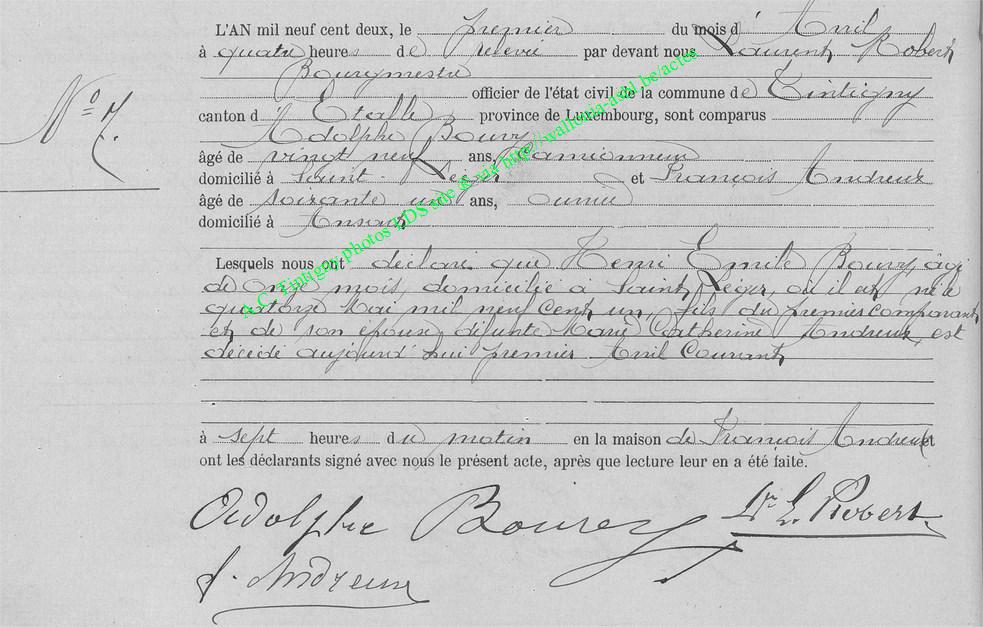 L'AN mil neuf cent deux, le premier du mois d'Avril
à quatre heures de relevée par devant nous Laurent Robert
Bourgmestre
officier de l'état civil de la commune de Tintigny
canton d'Etalle province de Luxembourg, sont comparus
Adolphe Boury
âgé de vingt neuf ans, camionneur
N° 7.
domicilié à Saint-Léger et François Andreux
âgé de soixante un ans, ouvrier
domicilié à Ansart
Lesquels nous ont déclaré que Henri Emile Boury, âgé
de onze mois, domicilié à Saint Léger, où il est né le
quatorze Mai mil neuf cent un, fils du premier comparant
et de son épouse défunte Marie Catherine Andreux, est
décédé aujourd'hui premier Avril Courant
à sept heures du matin en la maison de François Andreux
ont les déclarants signé avec nous le présent acte, après que lecture leur en a été faite.
Adolphe Bourey Dr L. Robert
f. Andreux
A.C. Tintigny photos EDS site & via http://wallonia-asbl.be/actes